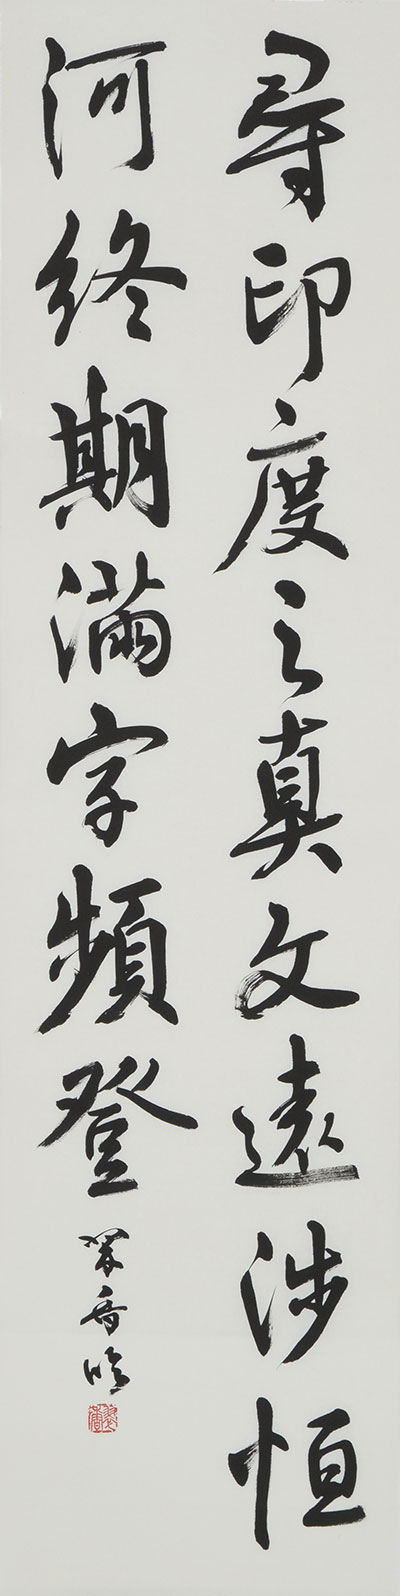 尋印度之真文遠涉恒
河終期滿字頻登
翠香臨